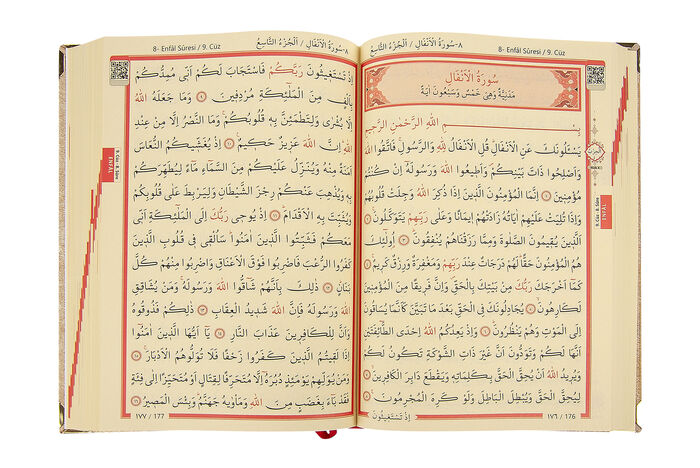 ٨-سُورَةُ الْاَنْفَالِ / اَلْجُزْءُ التَّاسِعُ
8- Enfâl Sûresi / 9. Cüz
سُورَةُ الْاَنْفَالِ
مَدَنِيَّةٌ وَهِيَ خَمْسٌ وَسَبْعُونَ اٰيَةً
بِسْــــمِ اللّٰهِ الرَّحْمٰنِ الرَّحٖيمِ
يَسْـَٔلُونَكَ عَنِ الْاَنْفَالِ قُلِ الْاَنْفَالُ لِلّٰهِ وَالرَّسُولِ فَاتَّقُوا اللّٰهَ
وَاَصْلِحُوا ذَاتَ بَيْنِكُمْ وَاَطٖيعُوا اللّٰهَ وَرَسُولَهُٓ اِنْ كُنْتُمْ
مُؤْمِنٖينَ ﴿١﴾ اِنَّمَا الْمُؤْمِنُونَ الَّذٖينَ اِذَا ذُكِرَ اللّٰهُ وَجِلَتْ قُلُوبُهُمْ
وَاِذَا تُلِيَتْ عَلَيْهِمْ اٰيَاتُهُ زَادَتْهُمْ اٖيمَانًا وَعَلٰى رَبِّهِمْ يَتَوَكَّلُونَ ﴿٢﴾
اَلَّذٖينَ يُقٖيمُونَ الصَّلٰوةَ وَمِمَّا رَزَقْنَاهُمْ يُنْفِقُونَ ﴿٣﴾ اُو۬لٰٓئِكَ
هُمُ الْمُؤْمِنُونَ حَقًّا لَهُمْ دَرَجَاتٌ عِنْدَ رَبِّهِمْ وَمَغْفِرَةٌ وَرِزْقٌ كَرٖيمٌ ﴿٤﴾
كَمَٓا اَخْرَجَكَ رَبُّكَ مِنْ بَيْتِكَ بِالْحَقِّ وَاِنَّ فَرٖيقًا مِنَ الْمُؤْمِنٖينَ
لَكَارِهُونَ ﴿٥﴾ يُجَادِلُونَكَ فِي الْحَقِّ بَعْدَ مَا تَبَيَّنَ كَاَنَّمَا يُسَاقُونَ
اِلَى الْمَوْتِ وَهُمْ يَنْظُرُونَ ﴿٦﴾ وَاِذْ يَعِدُكُمُ اللّٰهُ اِحْدَى الطَّٓائِفَتَيْنِ
اَنَّهَا لَكُمْ وَتَوَدُّونَ اَنَّ غَيْرَ ذَاتِ الشَّوْكَةِ تَكُونُ لَكُمْ
وَيُرٖيدُ اللّٰهُ اَنْ يُحِقَّ الْحَقَّ بِكَلِمَاتِهٖ وَيَقْطَعَ دَابِرَ الْكَافِرٖينَ ﴿٧﴾
لِيُحِقَّ الْحَقَّ وَيُبْطِلَ الْبَاطِلَ وَلَوْ كَرِهَ الْمُجْرِمُونَ ﴿٨﴾
اِذْ تَسْتَغٖيثُونَ
١٧٦ / 176
9. Cüz - 8. Sûre
ENFÂL
٨-سُورَةُ الْاَنْفَالِ / اَلْجُزْءُ التَّاسِعُ
8- Enfâl Sûresi / 9. Cüz
اِذْ تَسْتَغٖيثُونَ رَبَّكُمْ فَاسْتَجَابَ لَكُمْ اَنّٖي مُمِدُّكُمْ
بِاَلْفٍ مِنَ الْمَلٰٓئِكَةِ مُرْدِفٖينَ ﴿٩﴾ وَمَا جَعَلَهُ اللّٰهُ
اِلَّا بُشْرٰى وَلِتَطْمَئِنَّ بِهٖ قُلُوبُكُمْ وَمَا النَّصْرُ اِلَّا مِنْ عِنْدِ
اللّٰهِ اِنَّ اللّٰهَ عَزٖيزٌ حَكٖيمٌ ﴿١٠﴾ اِذْ يُغَشّٖيكُمُ النُّعَاسَ
اَمَنَةً مِنْهُ وَيُنَزِّلُ عَلَيْكُمْ مِنَ السَّمَٓاءِ مَٓاءً لِيُطَهِّرَكُمْ
بِهٖ وَيُذْهِبَ عَنْكُمْ رِجْزَ الشَّيْطَانِ وَلِيَرْبِطَ عَلٰى قُلُوبِكُمْ
وَيُثَبِّتَ بِهِ الْاَقْدَامَ ﴿١١﴾ اِذْ يُوحٖي رَبُّكَ اِلَى الْمَلٰٓئِكَةِ اَنّٖي
مَعَكُمْ فَثَبِّتُوا الَّذٖينَ اٰمَنُوا سَاُلْقٖي فٖي قُلُوبِ الَّذٖينَ
كَفَرُوا الرُّعْبَ فَاضْرِبُوا فَوْقَ الْاَعْنَاقِ وَاضْرِبُوا مِنْهُمْ كُلَّ
بَنَانٍ ﴿١٢﴾ ذٰلِكَ بِاَنَّهُمْ شَٓاقُّوا اللّٰهَ وَرَسُولَهُ وَمَنْ يُشَاقِقِ
اللّٰهَ وَرَسُولَهُ فَاِنَّ اللّٰهَ شَدٖيدُ الْعِقَابِ ﴿١٣﴾ ذٰلِكُمْ فَذُوقُوهُ
وَاَنَّ لِلْكَافِرٖينَ عَذَابَ النَّارِ ﴿١٤﴾ يَٓا اَيُّهَا الَّذٖينَ اٰمَنُٓوا
اِذَا لَقٖيتُمُ الَّذٖينَ كَفَرُوا زَحْفًا فَلَا تُوَلُّوهُمُ الْاَدْبَارَ ﴿١٥﴾
وَمَنْ يُوَلِّهِمْ يَوْمَئِذٍ دُبُرَهُٓ اِلَّا مُتَحَرِّفًا لِقِتَالٍ اَوْ مُتَحَيِّزًا اِلٰى فِئَةٍ
فَقَدْ بَٓاءَ بِغَضَبٍ مِنَ اللّٰهِ وَمَأْوٰيهُ جَهَنَّمُ وَبِئْسَ الْمَصٖيرُ ﴿١٦﴾
١٧٧ / 177
9. Cüz - 8. Sûre
ENFÂL